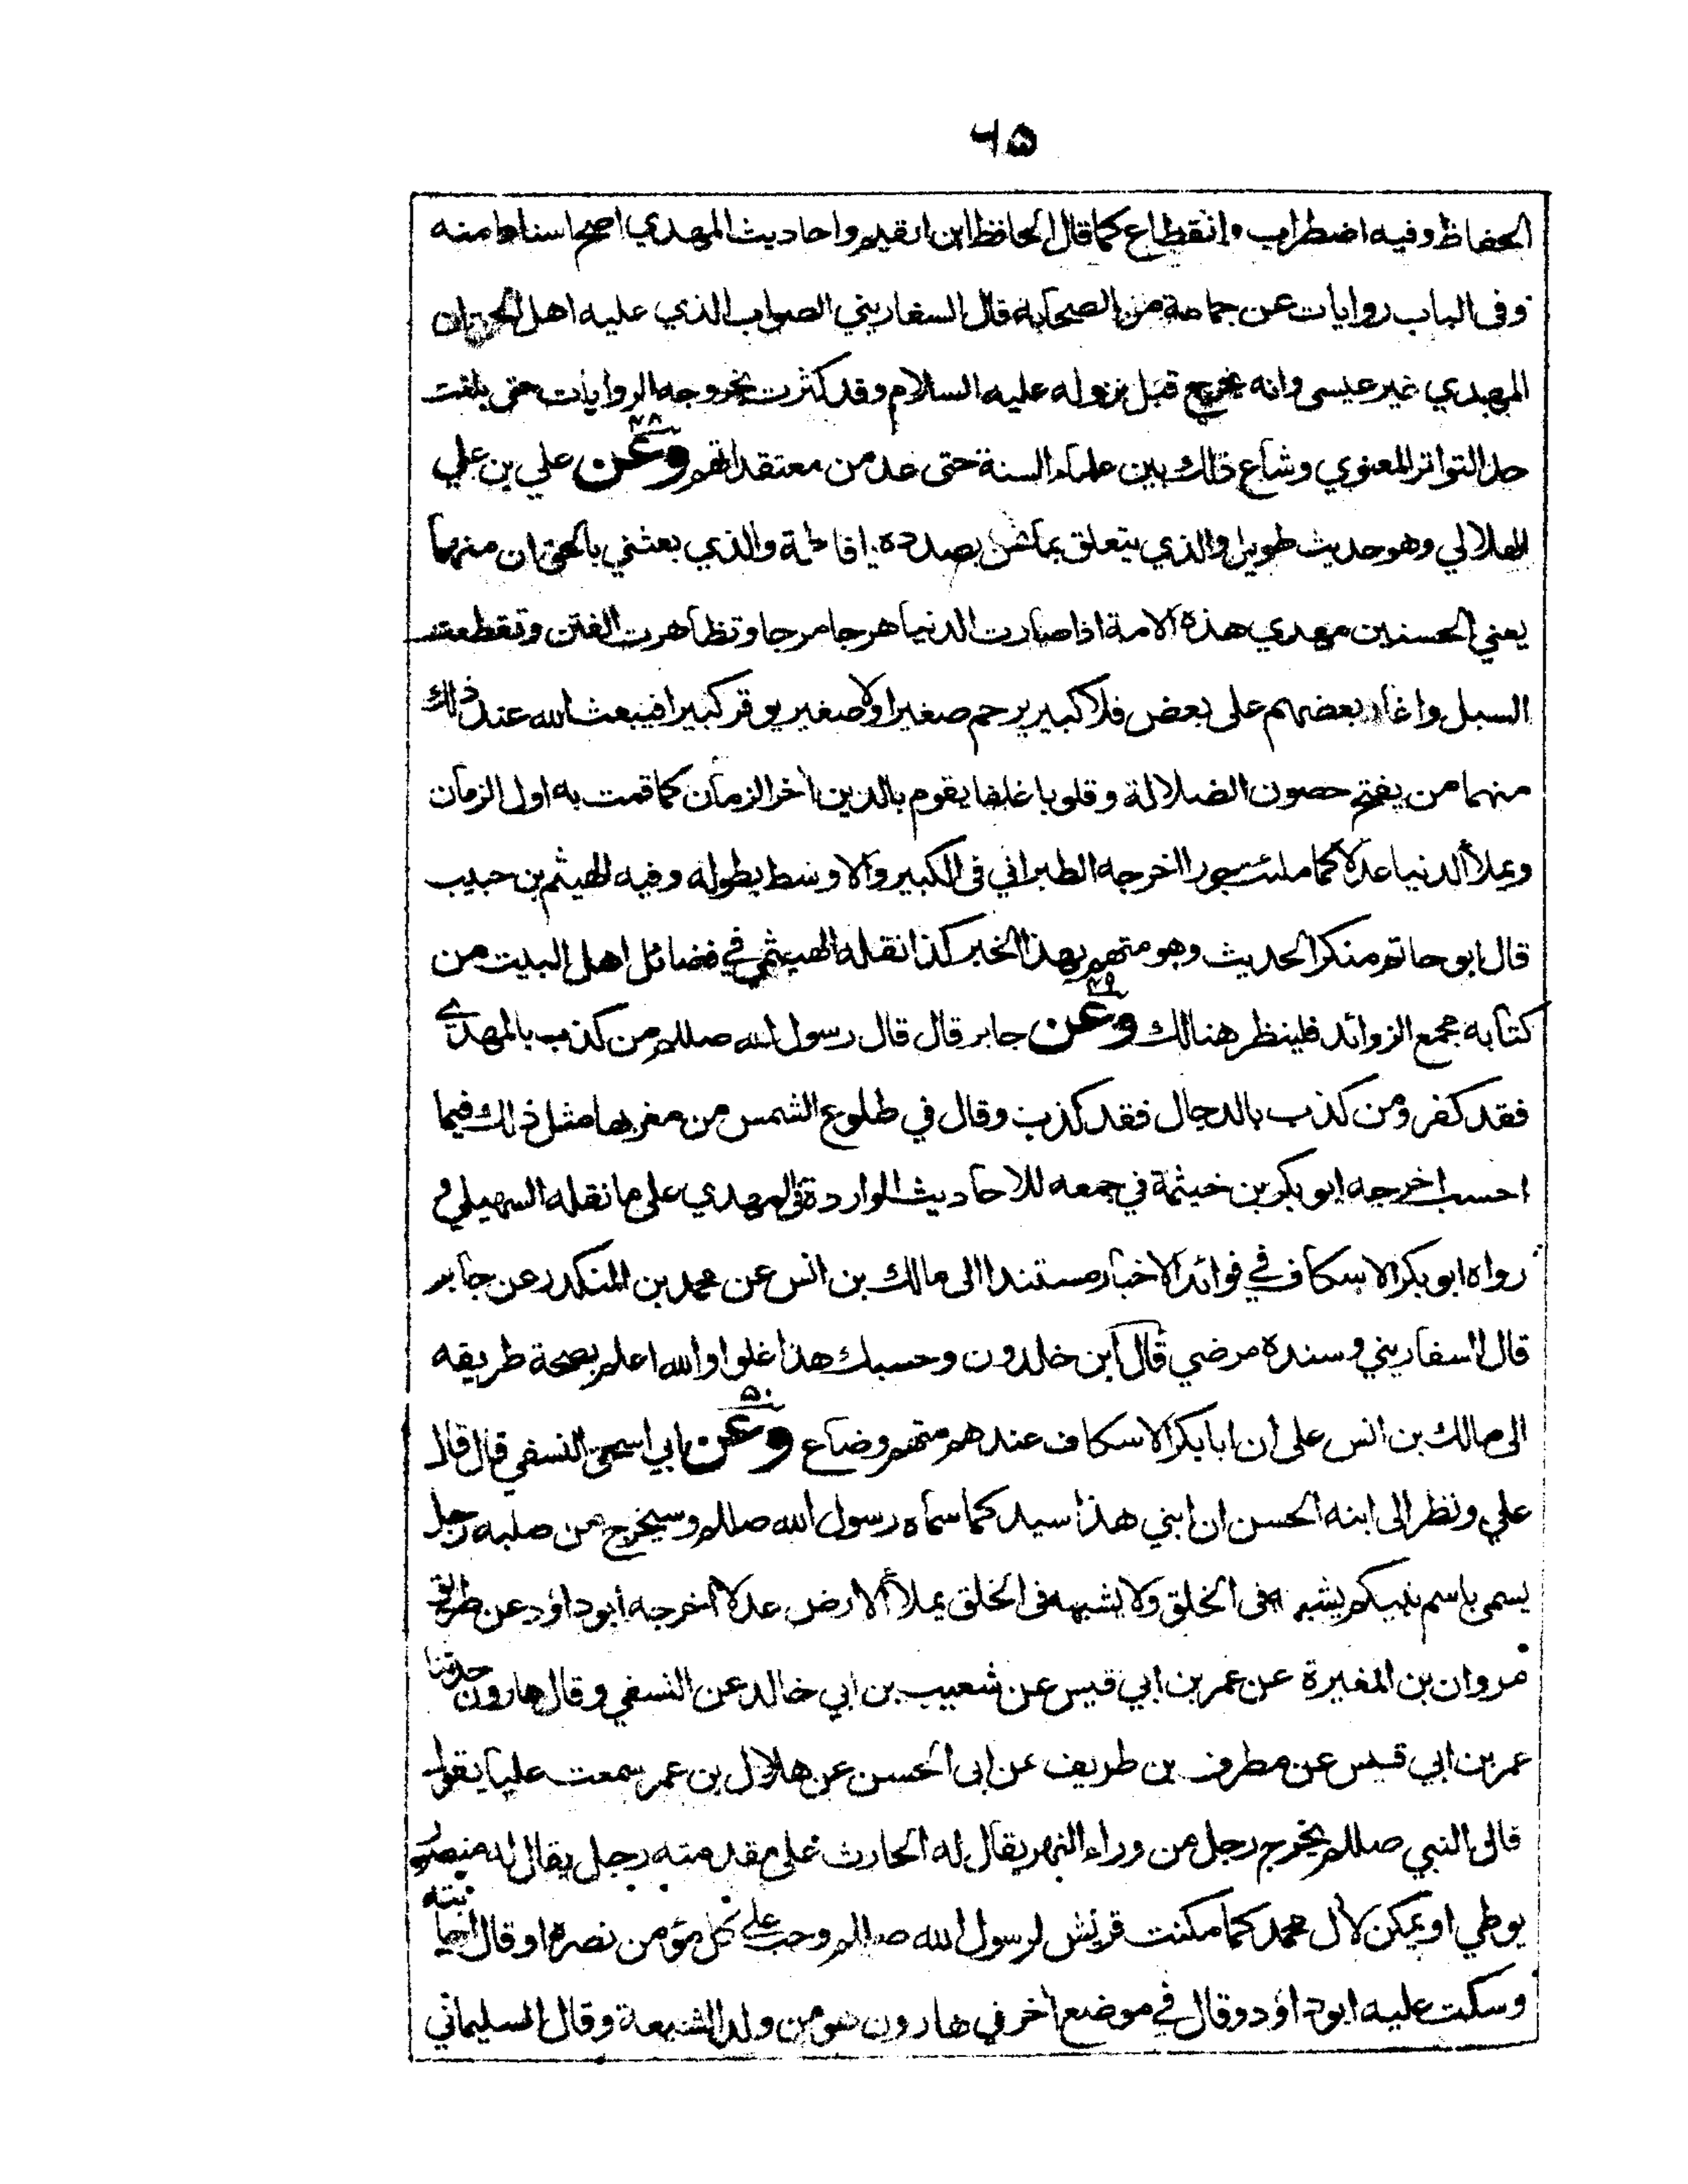 ٦٥
الحفاظ وفيه اضطراب وانقطاع كما قال الحافظ ابن القيم واحاديث المهدي اصح اسنادا منه
وفى الباب روايات عن جماعة من الصحابة قال السفاريني الصواب الذي عليه اهل الحق ان
المهدي غير عيسى وانه يخرج قبل نزوله عليه السلام وقد كثرت بخروجه الروايات حتى بلغت
حد التواتر المعنوي وشاع ذلك بين علماء السنة حتى عد من معتقداتهم ٤٨ وعن علي بن علي
الهلالي وهو حديث طويل والذي يتعلق بما نحن بصدده يا فاطمة والذي بعثني بالحق ان منهما
يعني الحسنين مهدي هذه الامة اذا صارت الدنيا هرجا مرجا وتظاهرت الفتن وتقطعت
السبل واغار بعضهم على بعض فلا كبير يرحم صغيرا ولا صغير يوقر كبيرا فيبعث الله عند ذلك
منهما من يفتح حصون الضلالة وقلوبا غلفا يقوم بالدين اخر الزمان كما قمت به اول الزمان
ويملأ الدنيا عدلا كما ملئت جورا اخرجه الطبراني فى الكبير والاوسط بطوله وفيه الهيثم بن حبيب
قال ابو حاتم منكر الحديث وهو متهم بهذا الخبر كذا نقله الهيثمي في فضائل اهل البيت من
كتابه مجمع الزوائد فلينظر هنالك ٤٩ وعن جابر قال قال رسول الله صللم من كذب بالمهدي
فقد كفر ومن كذب بالدجال فقد كذب وقال في طلوع الشمس من مغربها مثل ذلك فيما
احسب اخرجه ابو بكر بن خيثمة في جمعه للاحاديث الواردة فى المهدي على ما نقله السهيلي و
رواه ابو بكر الاسكاف في فوائد الاخبار مستندا الى مالك بن انس عن محمد بن المنكدر عن جابر
قال السفاريني وسنده مرضي قال ابن خلدون وحسبك هذا غلوا والله اعلم بصحة طريقه
الى مالك بن انس على ان ابا بكر الاسكاف عندهم متهم وضاع ٥٠ وعن ابي اسحق النسفي قال قال
علي ونظر الى ابنه الحسن ان ابني هذا سيد كما سماه رسول الله صللم وسيخرج من صلبه رجل
يسمى باسم نبيكم يشبهه فى الخلق ولا يشبهه فى الخلق يملأ الارض عدلا اخرجه ابو داؤد عن طريق
مروان بن المغيرة عن عمر بن ابي قيس عن شعيب بن ابي خالد عن النسفي وقال هارون حدثنا
عمر بن ابي قيس عن مطرف بن طريف عن ابى الحسن عن هلال بن عمر سمعت عليا يقول
قال النبي صللم يخرج رجل من وراء النهر يقال له الحارث على مقدمته رجل يقال له منصور
يوطي او يمكن لآل محمد كما مكنت قريش لرسول الله صللم وجب على كل مؤمن نصره او قال اجابته
وسكت عليه ابو داؤد وقال في موضع اخر في هارون هو من ولد الشيعة وقال السليماني